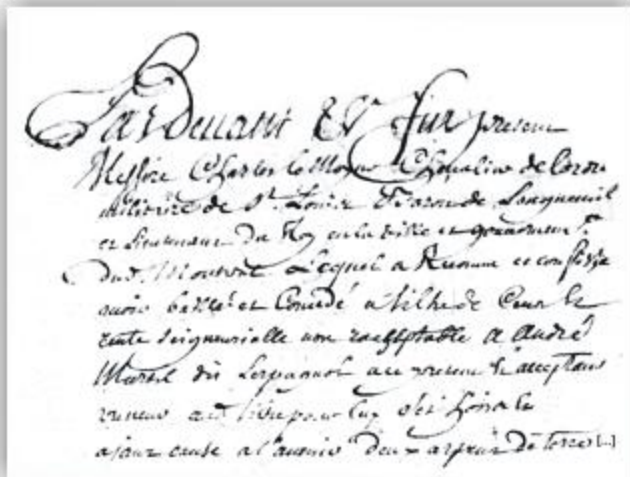 Pardevant &c. fut present
Messire Charles le Moyne Chevalier de l'ordre
militaire de St. Louis Baron de Longueuil
et Lieutenant du Roy en la ville et gouvernemt.
dud. Montreal Lequel a Reconnu et confessé
avoir baillé et Concedé a tiltre de Cens et
rente seigneurialle non rachptable a André
Marsil dit Lespagnol a ce present et acceptant
preneur aud. tiltre pour luy ses hoirs et
ayant cause a l'avenir deux arpens de terre [...]